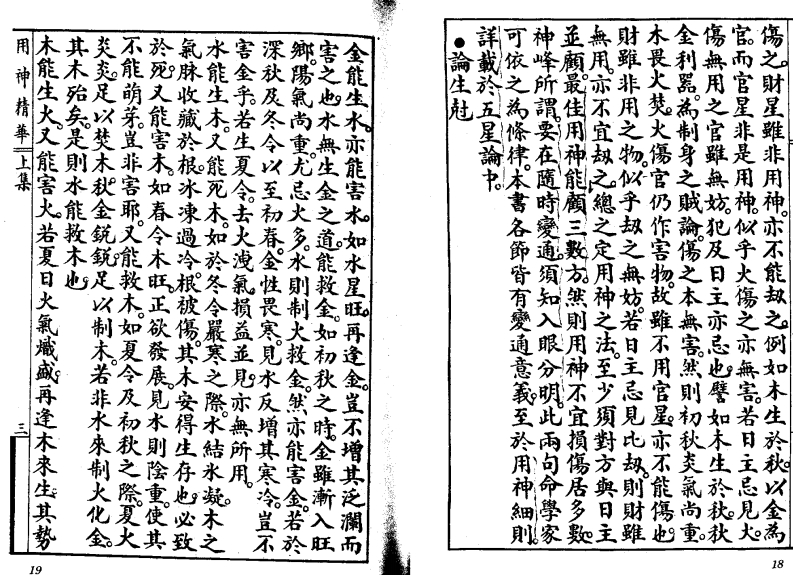 傷之。財星雖非用神。亦不能刼之。例如木生於秋。以金為
官。而官星非是用神。似乎火傷之亦無害。若日主忌見火。
傷無用之官雖無妨。犯及日主亦忌也。譬如木生於秋。秋
金利器。為制身之賊。論傷之本無害。然則初秋炎氣尚重。
木畏火焚。火傷官仍作害物。故雖不用官星。亦不能傷也。
財雖非用之物。似乎刼之無妨。若日主忌見比刼。則財雖
無用。亦不宜刼之。總之定用神之法。至少須對方與日主
並顧。最佳用神能顧三數方。然則用神不宜損傷居多數。
神峰所謂。要在隨時變通。須知入眼分明。此兩句命學家
可依之為條律。本書各節皆有變通意義。至於用神細則。
詳載於五星論中。
●論生尅
18
金能生水。亦能害水。如水星旺。再逢金。豈不增其泛瀾而
害之也。水無生金之道。能救金。如初秋之時。金雖漸入旺
鄉。陽氣尚重。尤忌火多。水則制火救金。然亦能害金。若於
深秋及冬令以至初春。金性畏寒。見水反增其寒冷。豈不
害金乎。若生夏令。去火洩氣。損益並見。亦無所用。
水能生木。又能死木。如於冬令嚴寒之際。水結氷凝。木之
氣脉收藏於根。冰凍過冷。根被傷。其木安得生存也。必致
於死。又能害木。如春令木旺。正欲發展。見水則陰重。使其
不能萌芽。豈非害耶。又能救木。如夏令及初秋之際。夏火
炎炎。足以焚木。秋金銳銳。足以制木。若非水來制火化金。
其木殆矣。是則水能救木也。
木能生火。又能害火。若夏日火氣熾盛。再逢木來生。其勢
用神精華 上集
三
19